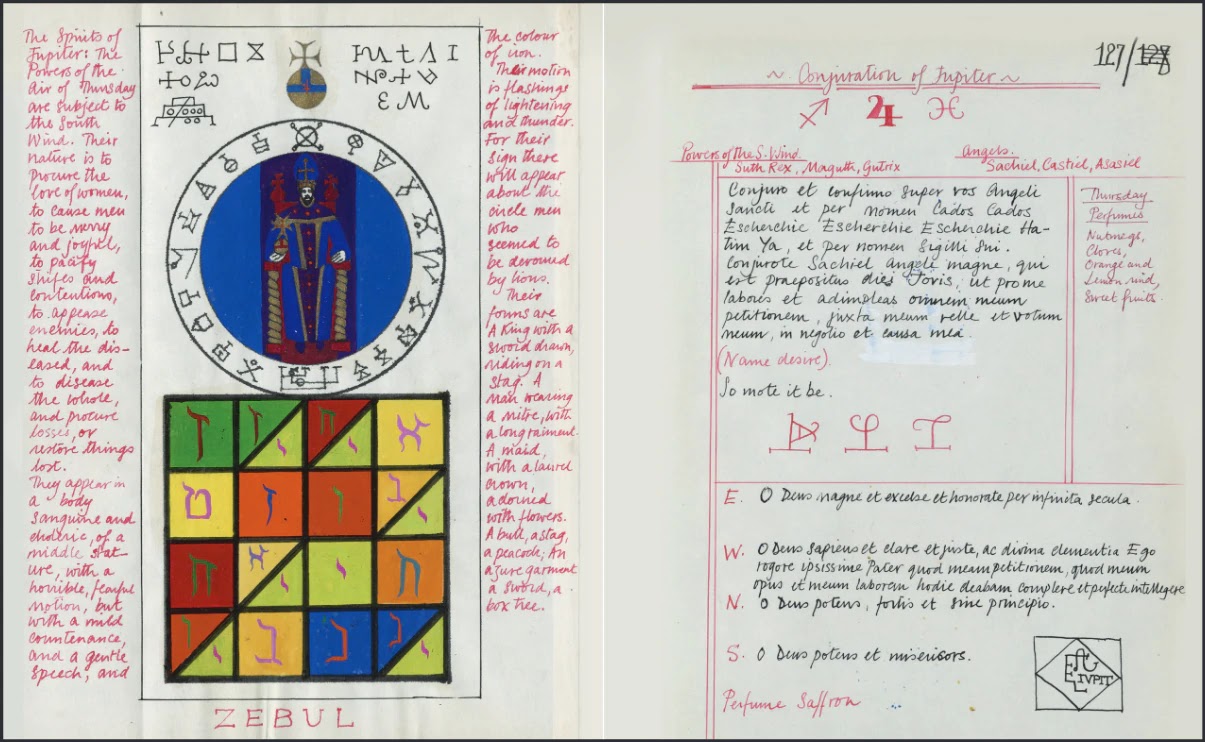 The Spirits of
Jupiter: The
Powers of the
Air of Thursday
are subject to
the South
Wind. Their
nature is to
procure the
love of women,
to cause men
to be merry
and joyful,
to pacify
strifes and
contentions,
to appease
enemies, to
heal the dis-
eased, and
to disease
the whole,
and procure
losses, or
restore things
lost.
They appear in
a body
sanguine and
choleric, of a
middle stat-
ure, with a
horrible, fearful
motion, but
with a mild
countenance,
and a gentle
speech, and
The colour
of iron.
Their motion
is flashings
of lightening
and thunder.
For their
sign there
will appear
about the
circle men
who
seemed to
be devoured
by lions.
Their
forms are
A King with a
sword drawn,
riding on a
stag. A
man wearing
a mitre, with
a long raiment.
A maid,
with a laurel
crown,
adorned
with flowers.
A bull, a stag,
a peacock; An
azure garment
a sword, a
box tree.
ד יד יה א
ט ז ו יב
ה יא י ח
יו ב ג יג
ZEBUL
127/128
~ Conjuration of Jupiter ~
♐ ♃ ♓
Powers of the S. Wind.
Suth Rex, Maguth, Gutrix
Angels.
Sachiel, Castiel, Asasiel
Conjuro et confirmo super vos Angeli
Sancti et per nomen Cados Cados
Escherchie Escherchie Escherchie Ha-
tim Ya, et per nomen Sigilli Sui.
Conjurote Sachiel Angeli magne, qui
est praepositus dies Jovis, ut pro me
labores et adimpleas omnem meum
petitionem, juxta meum velle et votum
meum, in negolio et causa mea.
(Name desire).
So mote it be.
Thursday
Perfumes
Nutmegs,
Cloves,
Orange and
Lemon rind,
Sweet fruits.
E. O Deus magne et excelse et honorate per infinita secula.
W. O Deus sapiens et clare et juste, ac divina clementia Ego
rogore ipsissime Pater quod meam petitionem, quod meum
opus et meum laborem hodie deabam complere et perfecte intellegere
N. O Deus potens, fortis et sine principio.
S. O Deus potens et miserisors.
Perfume Saffron
IVPIT